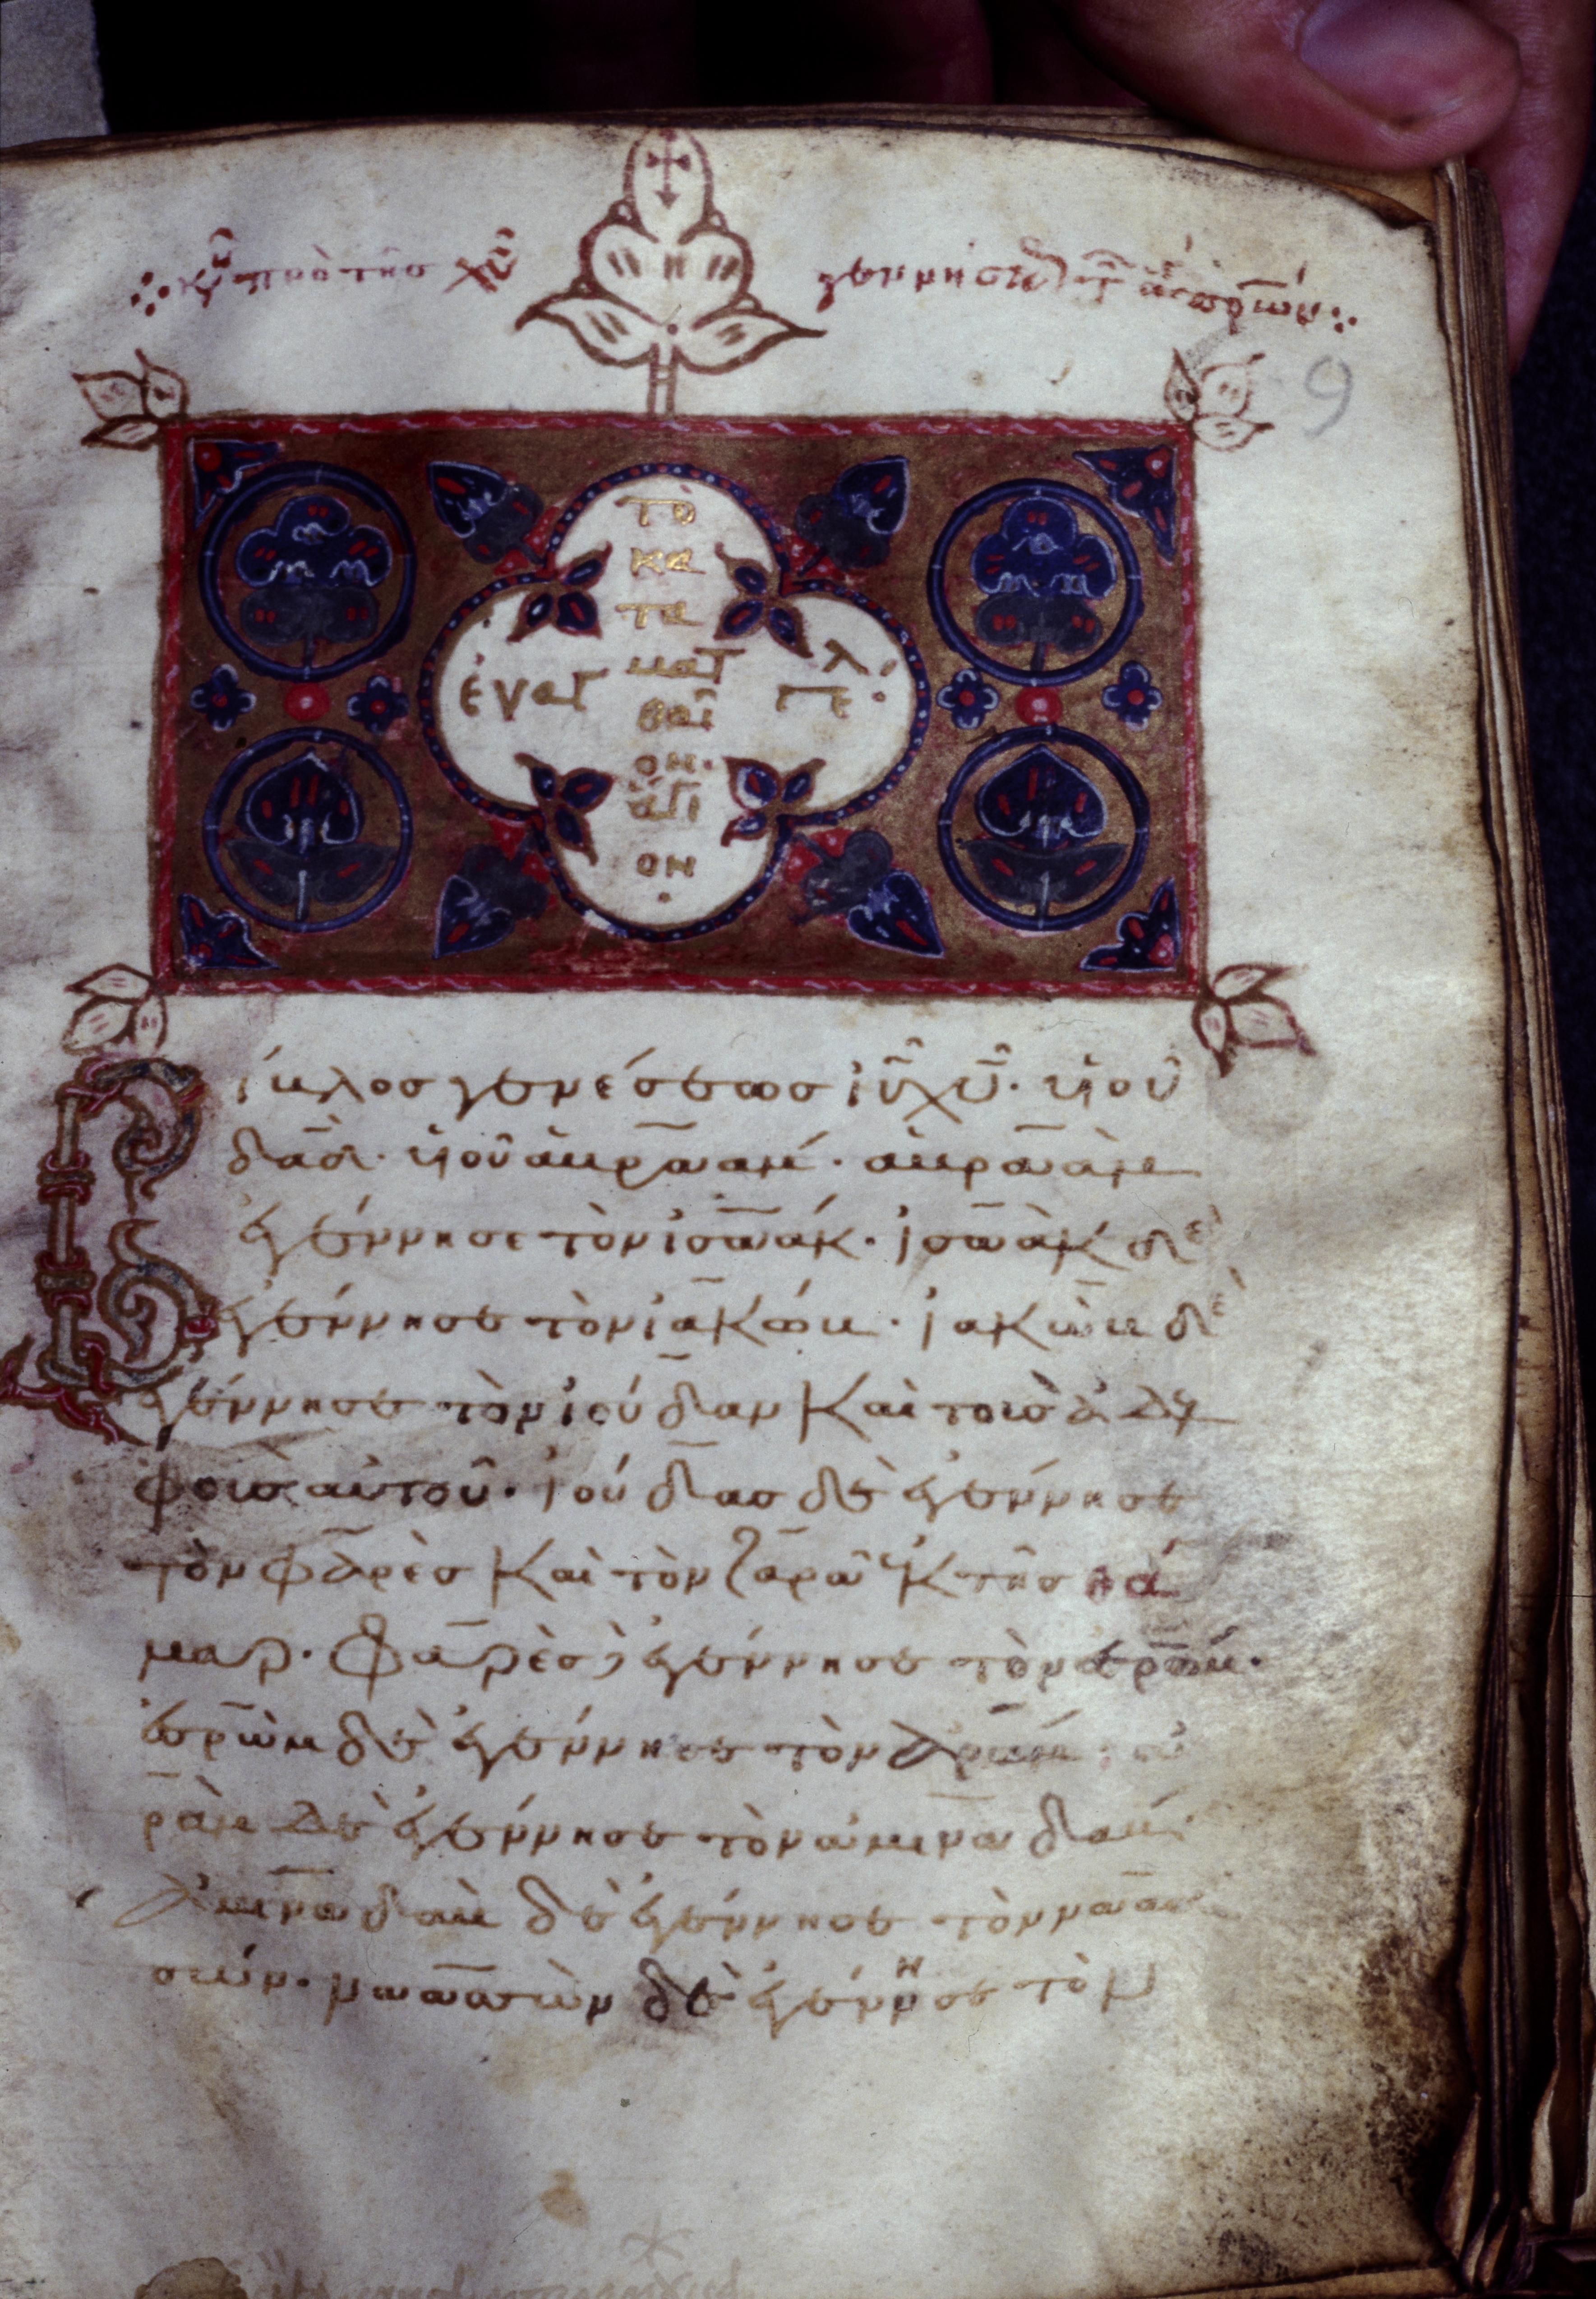 κυ πρὸ της χυ γεννήσεως των αγιων πρων
9
τὸ
κα
τα
ματ
ἐυαγ γελ
θαῖ
ον·
ἅγι
ον
Βίβλος γενέσεως ἰῦ χῦ· υἱοῦ
δα̅δ· υἱοῦ ἀβρααμ· ἀβραὰμ
ἐγέννησε τὸν ἰσαάκ· ἰσαὰκ δὲ
ἐγέννησε τὸν ἰακώβ· ἰακὼβ δὲ
ἐγέννησε τὸν ἰούδαν καὶ τοὺσ ἀδελ
φοὺσ αὐτοῦ· ἰούδασ δὲ ἐγέννησε
τὸν φαρὲσ καὶ τὸν ζαρὰ ἐκ τῆσ θά
μαρ· φαρὲσ δὲ ἐγέννησε τὸν ἐσρώμ·
ἐσρὼμ δὲ ἐγέννησε τὸν ἀράμ· ἀ
ρὰμ δὲ ἐγέννησε τὸν ἀμιναδάμ·
ἀμιναδὰμ δὲ ἐγέννησε τὸν ναασ
σών· ναασσὼν δὲ ἐγέννησε τὸν